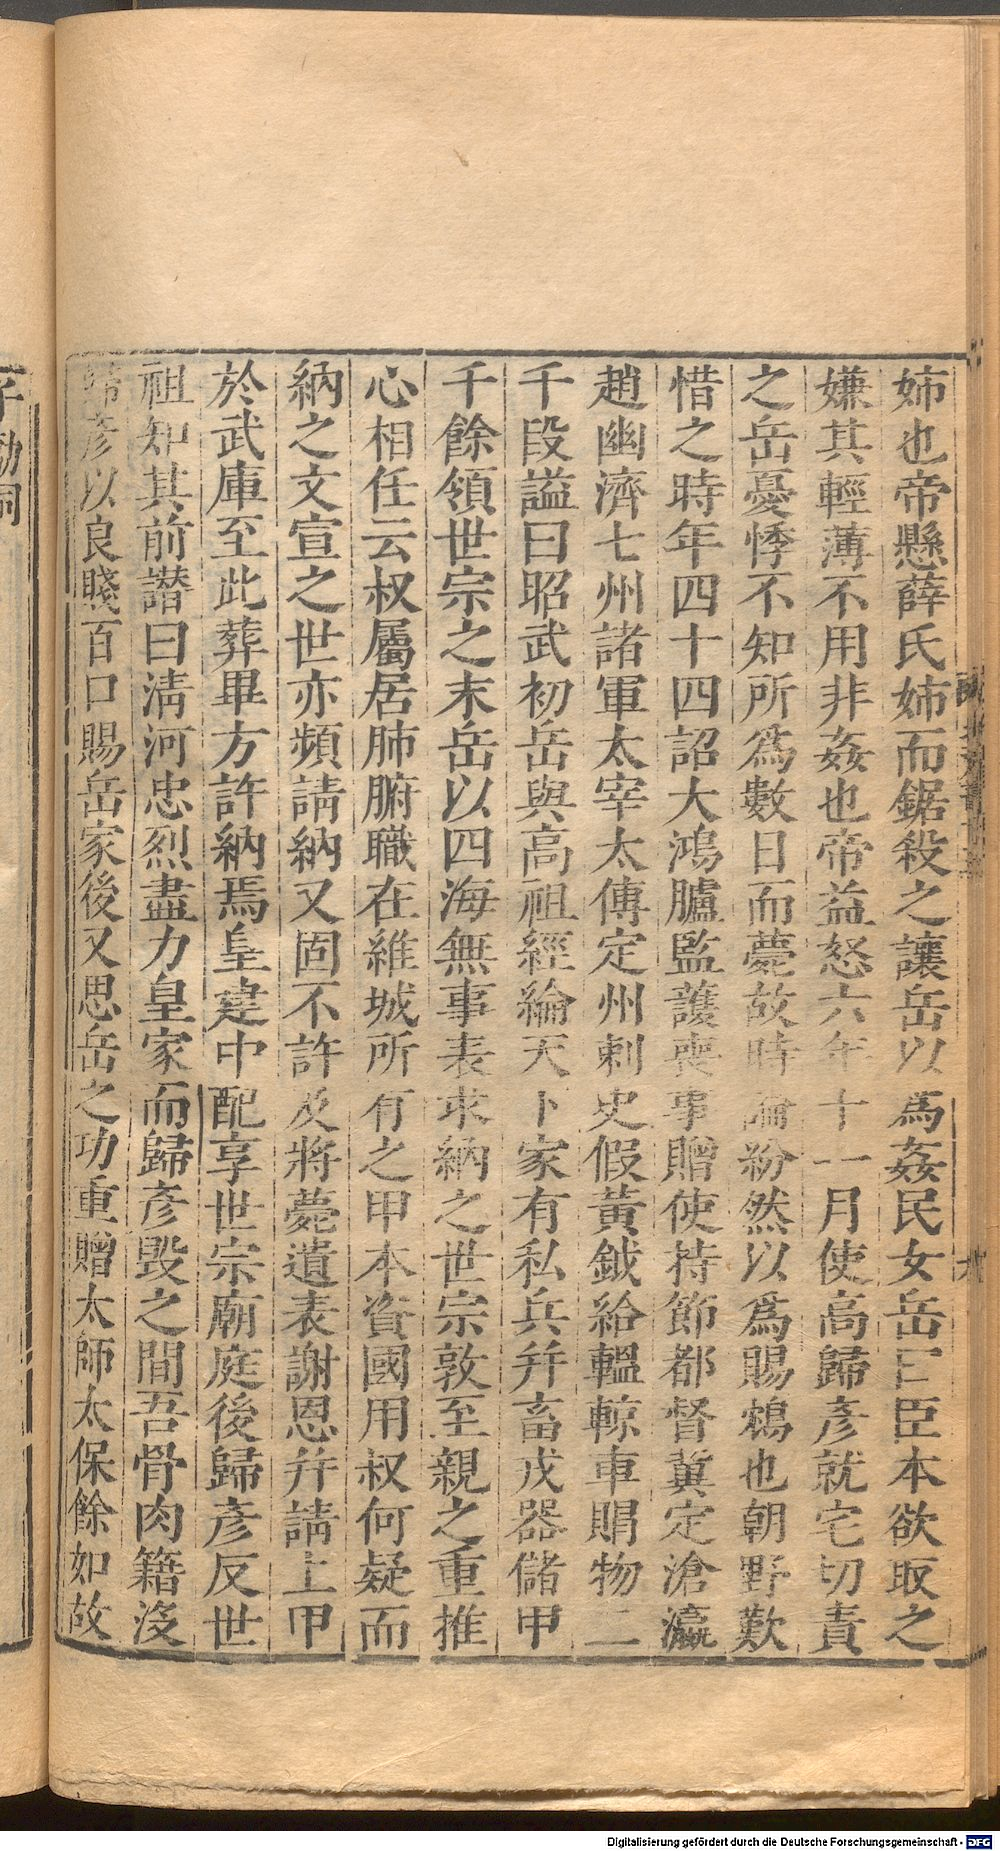 姉也帝懸薛氏姉而鋸殺之讓岳以爲姦民女岳曰臣本欲取之
嫌其輕薄不用非姦也帝益怒六年十一月使高歸彥就宅切責
之岳憂悸不知所爲數日而薨故時論紛然以爲賜鴆也朝野歎
惜之時年四十四詔大鴻臚監護喪事贈使持節都督冀定滄瀛
趙幽濟七州諸軍太宰太傅定州刺史假黃鉞給轀輬車賵物二
千段謚曰昭武初岳與高祖經綸天下家有私兵并畜戎器儲甲
千餘領世宗之末岳以四海無事表求納之世宗敦至親之重推
心相任云叔屬居肺腑職在維城所有之甲本資國用叔何疑而
納之文宣之世亦頻請納又固不許及將薨遺表謝恩并請上甲
於武庫至此葬畢方許納焉皇建中配享世宗廟庭後歸彥反世
祖知其前譖曰淸河忠烈盡力皇家而歸彥毀之間吾骨肉籍沒
歸彥以良賤百口賜岳家後又思岳之功重贈太師太保餘如故
Digitalisierung gefördert durch die Deutsche Forschungsgemeinschaft - DFG